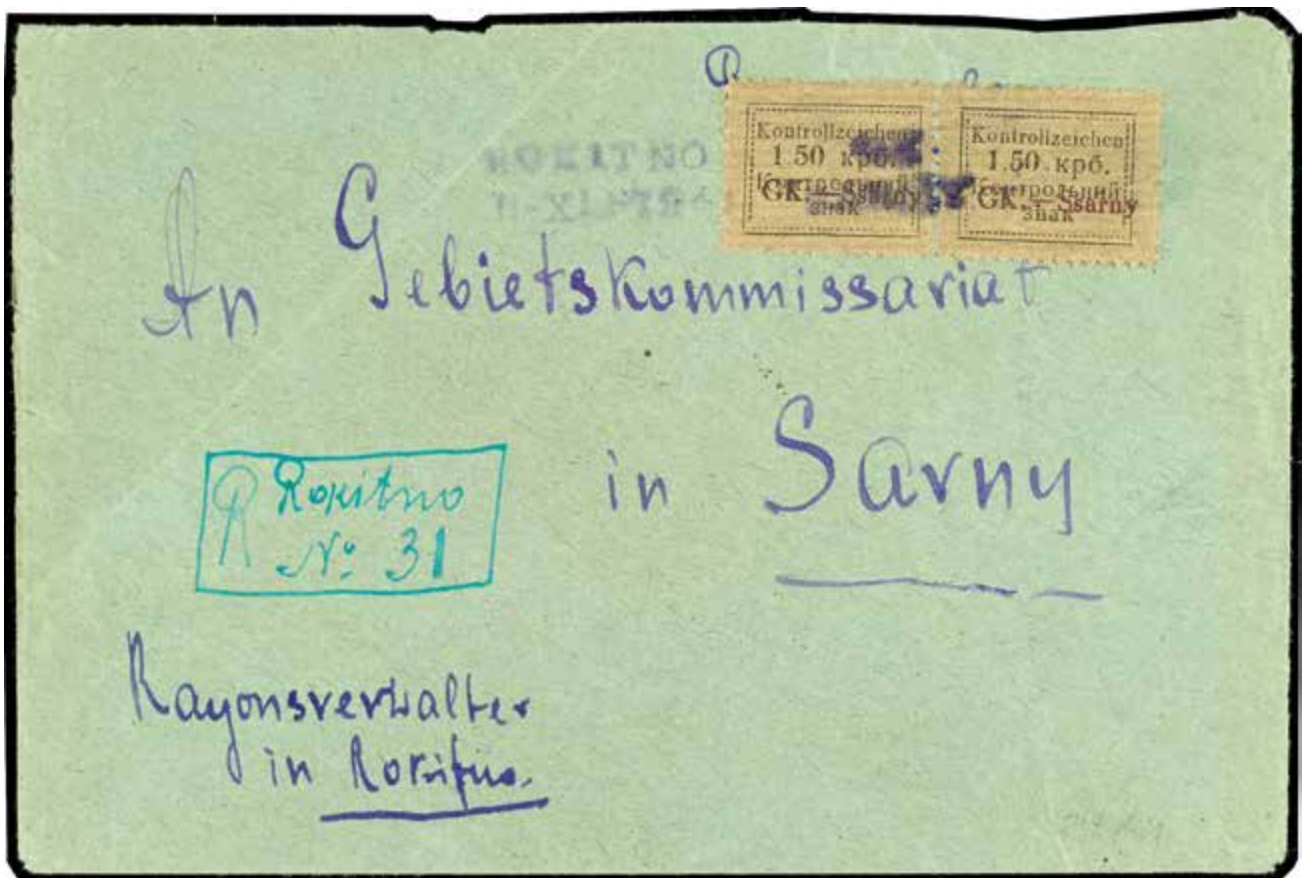 ROKITNO
Kontrollzeichen
1.50 крб.
Контрольний
знак
GK.-Ssarny
Kontrollzeichen
1.50 крб.
Контрольний
знак
GK.-Ssarny
An Gebietskommissariat
in Sarny
R Rokitno
№ 31
Rayonsverwalter
in Rokitno.